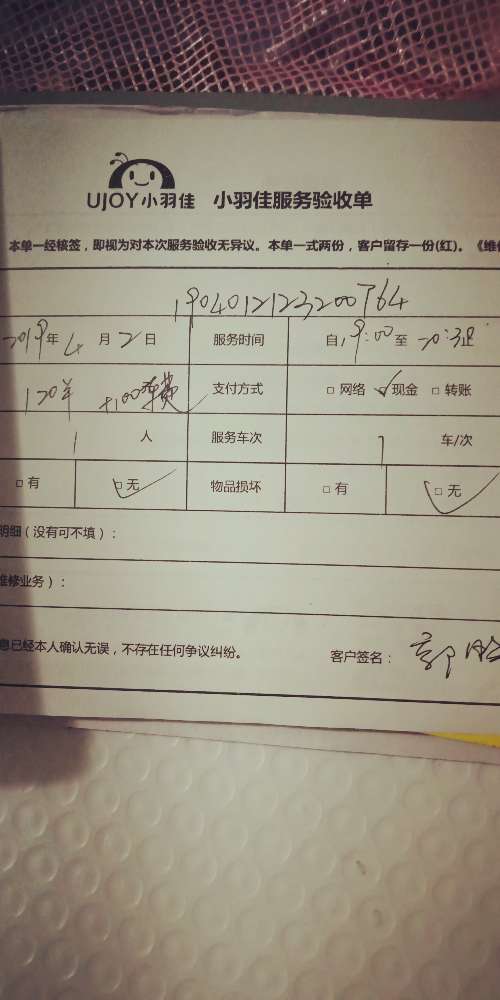 UJOY小羽佳 小羽佳服务验收单
本单一经核签，即视为对本次服务验收无异议。本单一式两份，客户留存一份(红)。《维修
1904012123200764
2019年4月2日 服务时间 自19:00至20:30止
120单 +100车费 支付方式 □网络 ☑现金 □转账
1人 服务车次 1车/次
□有 ☑无 物品损坏 □有 ☑无
明细（没有可不填）：
维修业务）：
息已经本人确认无误，不存在任何争议纠纷。 客户签名：郭